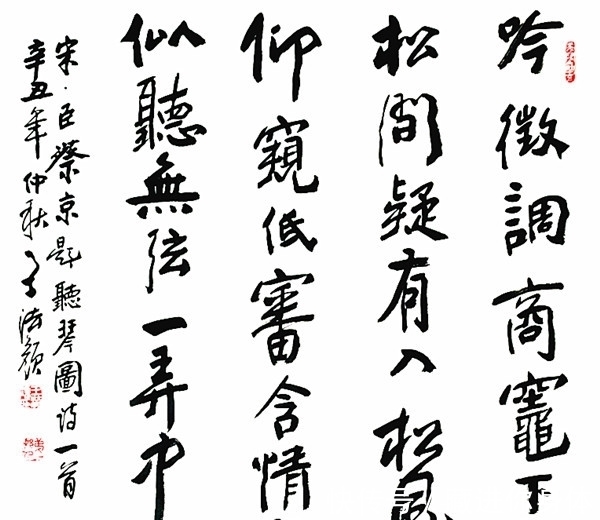 吟徵調商竈下
松間疑有入松風
仰窺低審含情
似聽無弦一弄中
宋·臣蔡京題聽琴圖詩一首
辛丑年仲秋